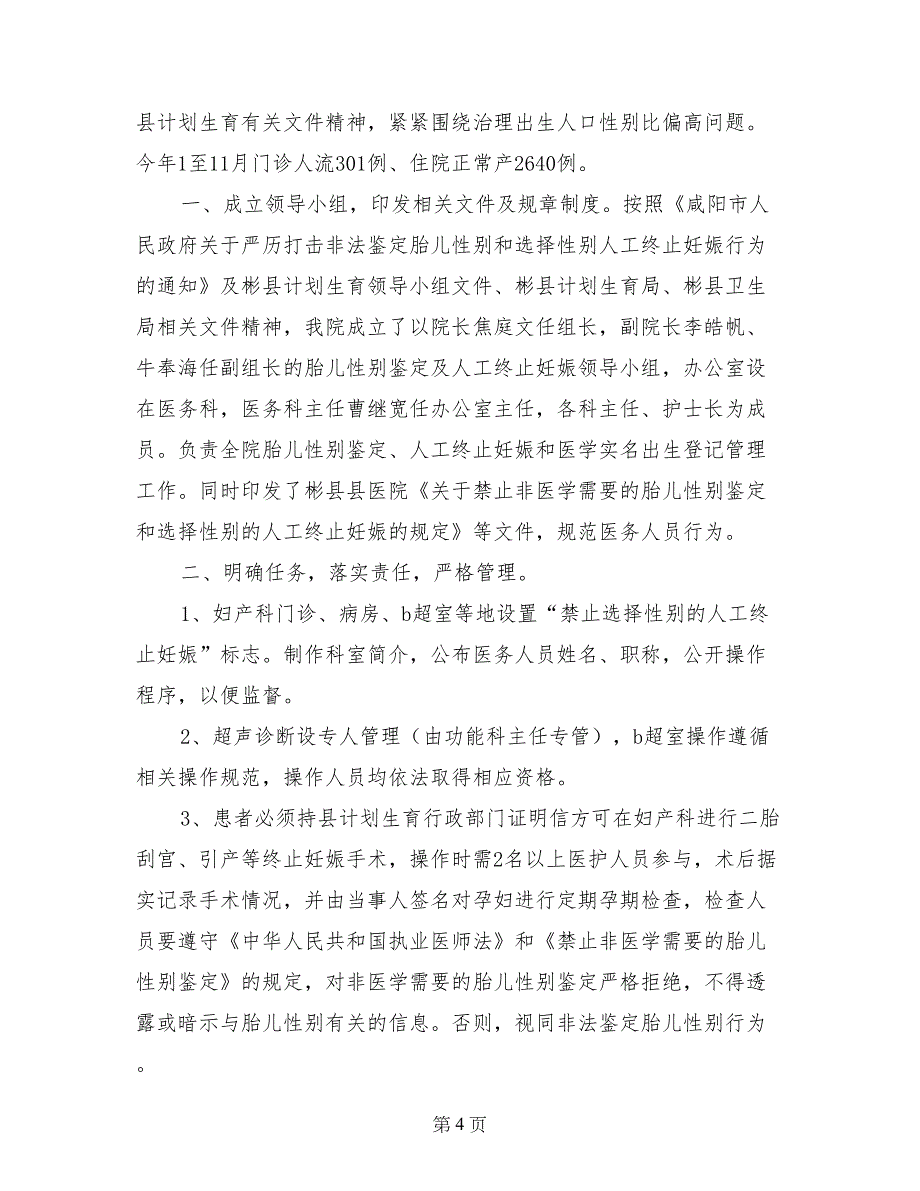 县计划生育有关文件精神，紧紧围绕治理出生人口性别比偏高问题。
今年1至11月门诊人流301例、住院正常产2640例。
一、成立领导小组，印发相关文件及规章制度。按照《咸阳市人
民政府关于严历打击非法鉴定胎儿性别和选择性别人工终止妊娠行为
的通知》及彬县计划生育领导小组文件、彬县计划生育局、彬县卫生
局相关文件精神，我院成立了以院长焦庭文任组长，副院长李皓帆、
牛奉海任副组长的胎儿性别鉴定及人工终止妊娠领导小组，办公室设
在医务科，医务科主任曹继宽任办公室主任，各科主任、护士长为成
员。负责全院胎儿性别鉴定、人工终止妊娠和医学实名出生登记管理
工作。同时印发了彬县县医院《关于禁止非医学需要的胎儿性别鉴定
和选择性别的人工终止妊娠的规定》等文件，规范医务人员行为。
二、明确任务，落实责任，严格管理。
1、妇产科门诊、病房、b超室等地设置“禁止选择性别的人工终
止妊娠”标志。制作科室简介，公布医务人员姓名、职称，公开操作
程序，以便监督。
2、超声诊断设专人管理（由功能科主任专管），b超室操作遵循
相关操作规范，操作人员均依法取得相应资格。
3、患者必须持县计划生育行政部门证明信方可在妇产科进行二胎
刮宫、引产等终止妊娠手术，操作时需2名以上医护人员参与，术后据
实记录手术情况，并由当事人签名对孕妇进行定期孕期检查，检查人
员要遵守《中华人民共和国执业医师法》和《禁止非医学需要的胎儿
性别鉴定》的规定，对非医学需要的胎儿性别鉴定严格拒绝，不得透
露或暗示与胎儿性别有关的信息。否则，视同非法鉴定胎儿性别行为
。
第 4 页